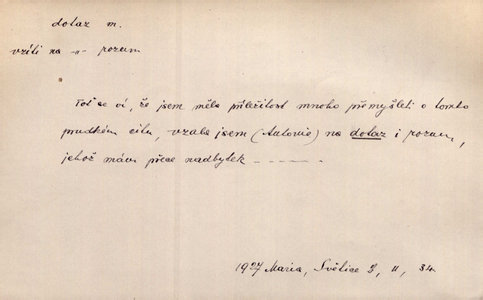 dotaz m.
vzíti na -"- rozum
"
Toť se ví, že jsem měla příležitost mnoho přemýšleti o tomto
prudkém citu, vzala jsem (Antonie) na dotaz i rozum,
jehož mám přece nadbytek - - - - - -
1927 Maria, Světice 3, II, 34.